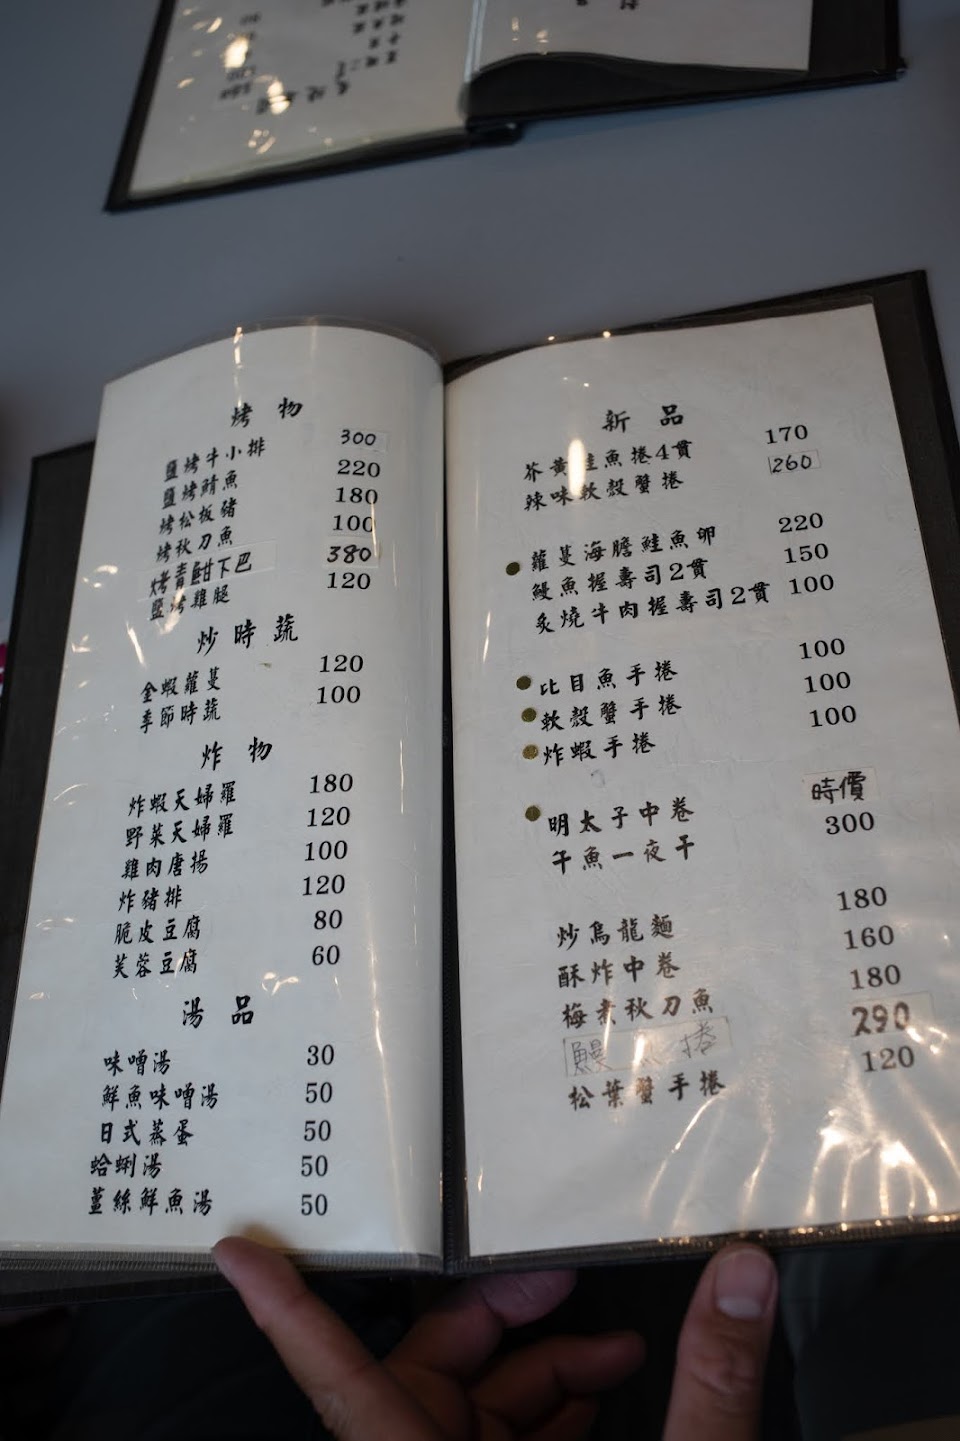 烤物
鹽烤牛小排 300
鹽烤鯖魚 220
烤松板豬 180
烤秋刀魚 100
烤青魽下巴 380
鹽烤雞腿 120
炒時蔬
金蝦蘿蔓 120
季節時蔬 100
炸物
炸蝦天婦羅 180
野菜天婦羅 120
雞肉唐揚 100
炸豬排 120
脆皮豆腐 80
芙蓉豆腐 60
湯品
味噌湯 30
鮮魚味噌湯 50
日式蒸蛋 50
蛤蜊湯 50
薑絲鮮魚湯 50
新品
芥黃鮭魚捲4貫 170
辣味軟殼蟹捲 260
蘿蔓海膽鮭魚卵 220
鰻魚握壽司2貫 150
炙燒牛肉握壽司2貫 100
比目魚手捲 100
軟殼蟹手捲 100
炸蝦手捲 100
明太子中卷 時價
午魚一夜干 300
炒烏龍麵 180
酥炸中卷 160
梅煮秋刀魚 180
鰻魚捲 290
松葉蟹手捲 120